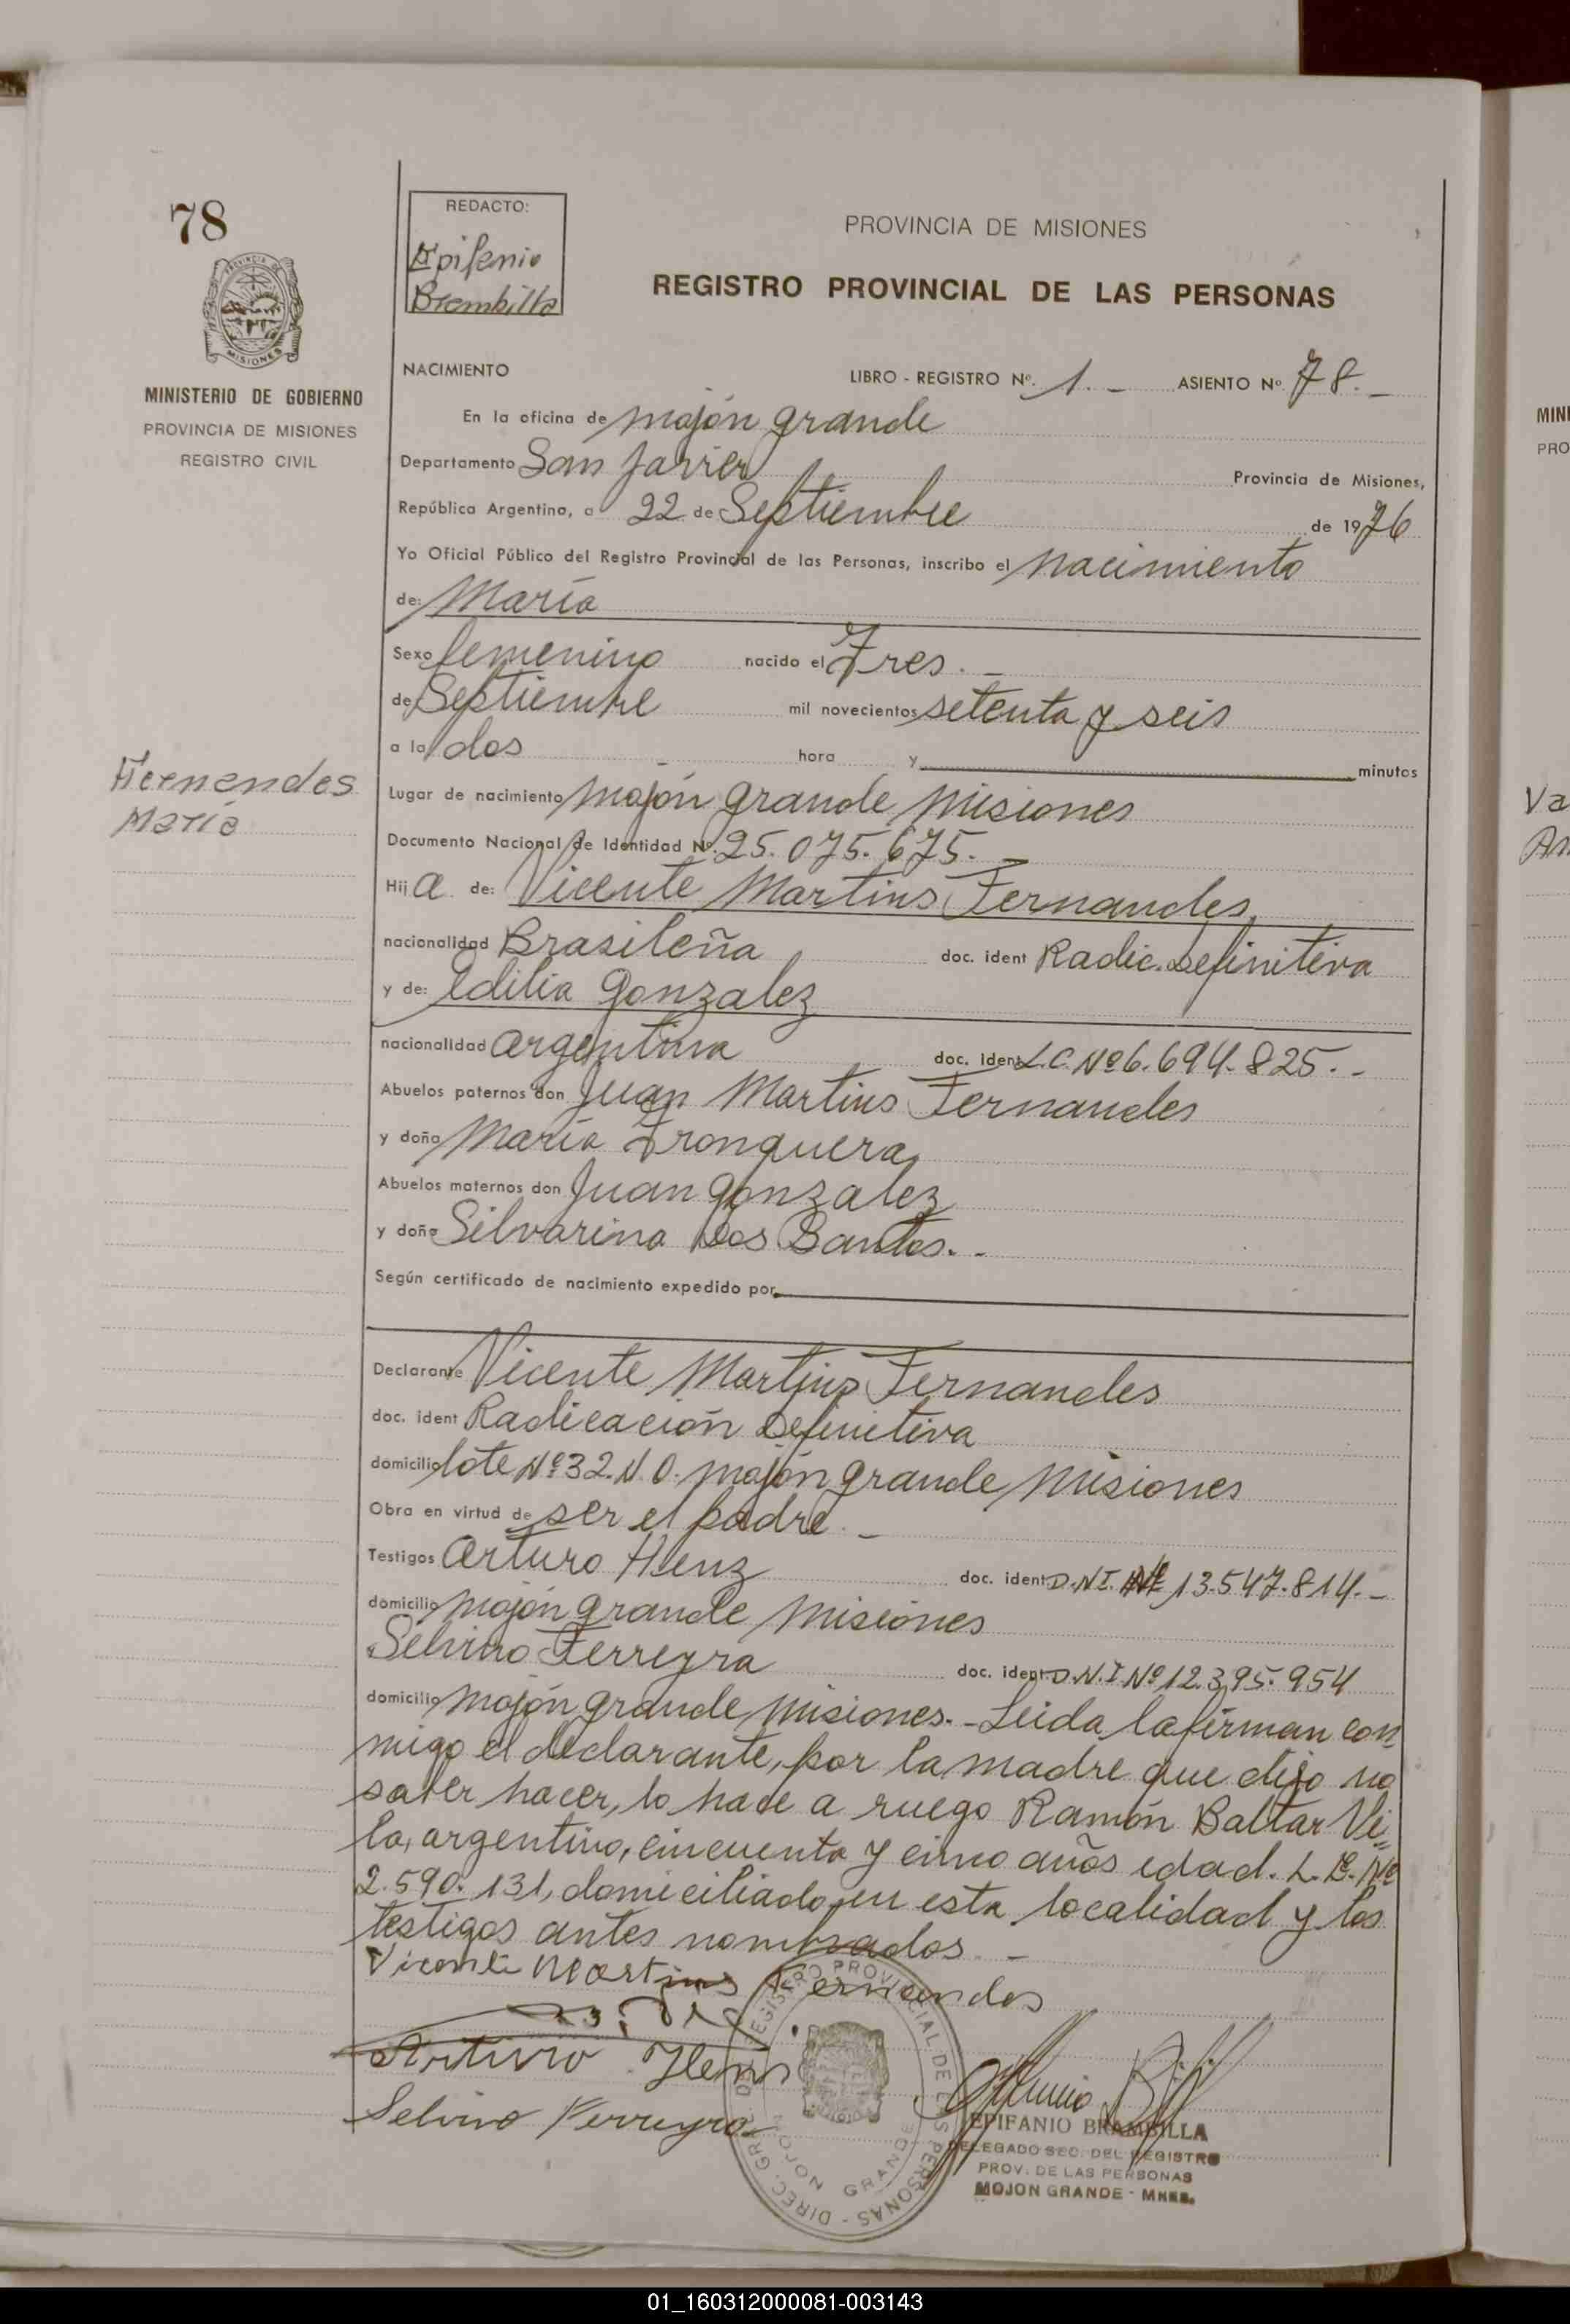 78
REDACTO:
Epifenio
Brembilla
PROVINCIA DE MISIONES
REGISTRO PROVINCIAL DE LAS PERSONAS
PROVINCIA DE
MISIONES
MINISTERIO DE GOBIERNO
PROVINCIA DE MISIONES
REGISTRO CIVIL
NACIMIENTO LIBRO - REGISTRO Nº. 1. - ASIENTO Nº. 78. -
En la oficina de Mojón grande
Departamento San Javier Provincia de Misiones,
República Argentina, a 22 de Septiembre de 1976
Yo Oficial Público del Registro Provincial de las Personas, inscribo el nacimiento
de: María
Sexo femenino nacido el Tres. -
de Septiembre mil novecientos setenta y seis
a la dos hora y minutos
Hernendes
María
Lugar de nacimiento Mojón grande Misiones
Documento Nacional de Identidad Nº. 25.075.675. -
Hija de: Vicente Martins Fernandes
nacionalidad Brasileña doc. ident Radic. Definitiva
y de: Edilia Gonzalez
nacionalidad argentina doc. ident L.C. Nº 6.694.825. -
Abuelos paternos don Juan Martins Fernandes
y doña María Tronquera
Abuelos maternos don Juan Gonzalez
y doña Silvarina Dos Santos. -
Según certificado de nacimiento expedido por
Declarante Vicente Martins Fernandes
doc. ident Radicación Definitiva
domicilio lote Nº 32. N.O. Mojón grande Misiones
Obra en virtud de ser el padre. -
Testigos Arturo Henz doc. ident D.N.I. Nº 13.547.814. -
domicilio Mojón grande Misiones
Selvino Ferreyra doc. ident D.N.I. Nº 12.395.954
domicilio Mojón grande Misiones. - Leida la firman con
migo el declarante, por la madre que dijo no
saber hacer, lo hace a ruego Ramón Baltar Vi=
la, argentino, cincuenta y cinco años edad. L.E. Nº
2.590.131, domiciliado en esta localidad y los
testigos antes nombrados. -
Vicente Martins Fernandes
Arturo Henz
Selvino Ferreyra
REGISTRO PROVINCIAL DE LAS PERSONAS - DIREC. GRAL. DEL
MOJON GRANDE
EPIFANIO BRAMBILLA
DELEGADO SEC. DEL REGISTRO
PROV. DE LAS PERSONAS
MOJON GRANDE - MNES.
MINI
PRO
Va
An
01_160312000081-003143